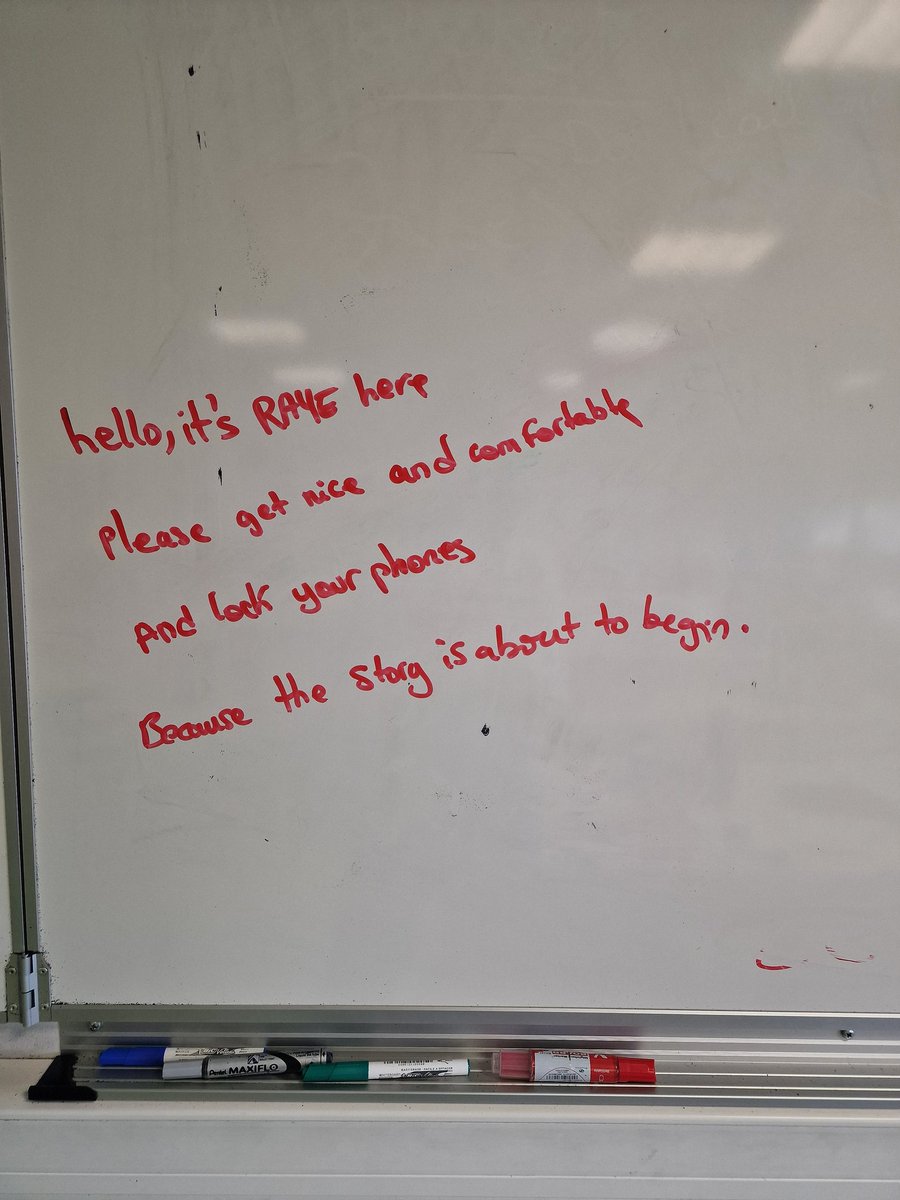 hello, it's RAYE here
please get nice and comfortable
And lock your phones
Because the story is about to begin.
Pentel MAXIFLO